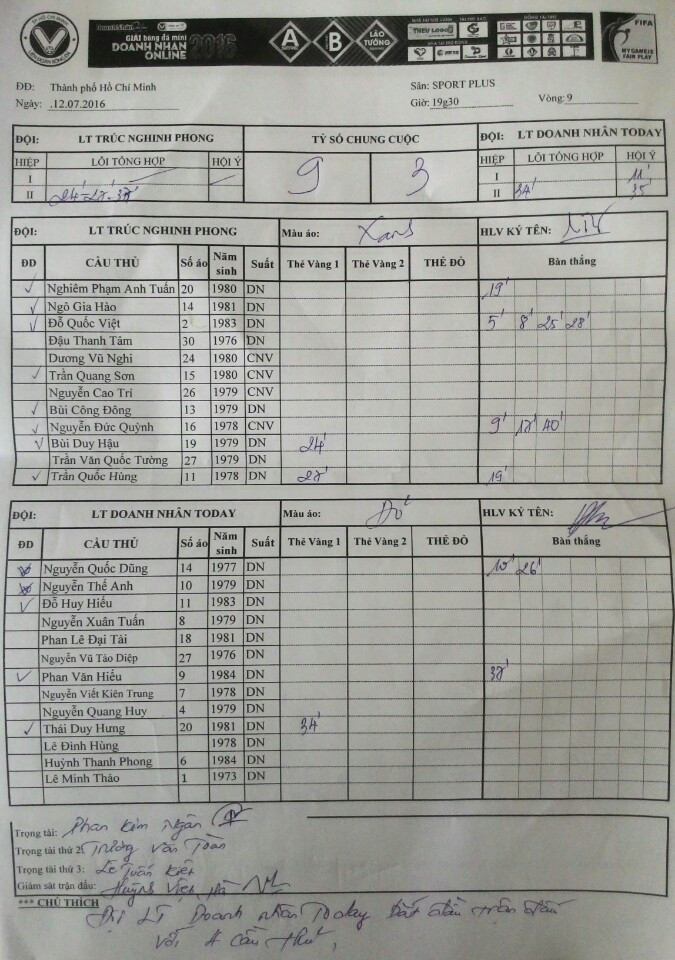 TP HỒ CHÍ MINH
LIÊN ĐOÀN BÓNG ĐÁ
DoanhNhân
GIẢI bóng đá mini
DOANH NHÂN
ONLINE
2016
A
B
LÁO
TƯỞNG
THEU LOGO
FIFA
MY GAME IS
FAIR PLAY
ĐĐ: Thành phố Hồ Chí Minh Sân: SPORT PLUS
Ngày: .12.07.2016 Giờ: 19g30 Vòng: 9
ĐỘI: LT TRÚC NGHINH PHONG TỶ SỐ CHUNG CUỘC ĐỘI: LT DOANH NHÂN TODAY
HIỆP LỖI TỔNG HỢP HỘI Ý 9 3 HIỆP LỖI TỔNG HỢP HỘI Ý
I I 11'
II 24'-27'-37' II 34' 35'
ĐỘI: LT TRÚC NGHINH PHONG Màu áo: Xanh HLV KÝ TÊN:
ĐD CẦU THỦ Số áo Năm sinh Suất Thẻ Vàng 1 Thẻ Vàng 2 THẺ ĐỎ Bàn thắng
Nghiêm Phạm Anh Tuấn 20 1980 DN 19'
Ngô Gia Hào 14 1981 DN
Đỗ Quốc Việt 2 1983 DN 5' 8' 25' 28'
Đậu Thanh Tâm 30 1976 DN
Dương Vũ Nghi 24 1980 CNV
Trần Quang Sơn 15 1980 CNV
Nguyễn Cao Trí 26 1979 CNV
Bùi Công Đông 13 1979 DN
Nguyễn Đức Quỳnh 16 1978 CNV 9' 17' 40'
Bùi Duy Hậu 19 1979 DN 24'
Trần Văn Quốc Tường 27 1979 DN
Trần Quốc Hùng 11 1978 DN 27' 19'
ĐỘI: LT DOANH NHÂN TODAY Màu áo: Đỏ HLV KÝ TÊN:
ĐD CẦU THỦ Số áo Năm sinh Suất Thẻ Vàng 1 Thẻ Vàng 2 THẺ ĐỎ Bàn thắng
Nguyễn Quốc Dũng 14 1977 DN 10' 26'
Nguyễn Thế Anh 10 1979 DN
Đỗ Huy Hiếu 11 1983 DN
Nguyễn Xuân Tuấn 8 1979 DN
Phan Lê Đại Tài 18 1981 DN
Nguyễn Vũ Tảo Diệp 27 1976 DN
Phan Văn Hiếu 9 1984 DN 37'
Nguyễn Viết Kiên Trung 7 1978 DN
Nguyễn Quang Huy 4 1979 DN
Thái Duy Hưng 20 1981 DN 34'
Lê Đình Hùng 1978 DN
Huỳnh Thanh Phong 6 1984 DN
Lê Minh Thảo 1 1973 DN
Trọng tài: Phan Kim Ngân
Trọng tài thứ 2: Trương Văn Toàn
Trọng tài thứ 3: Lê Tuấn Kiệt
Giám sát trận đấu: Huỳnh Việt
*** CHÚ THÍCH
Đội LT Doanh nhân Today bắt đầu trận đấu
với 4 cầu thủ.